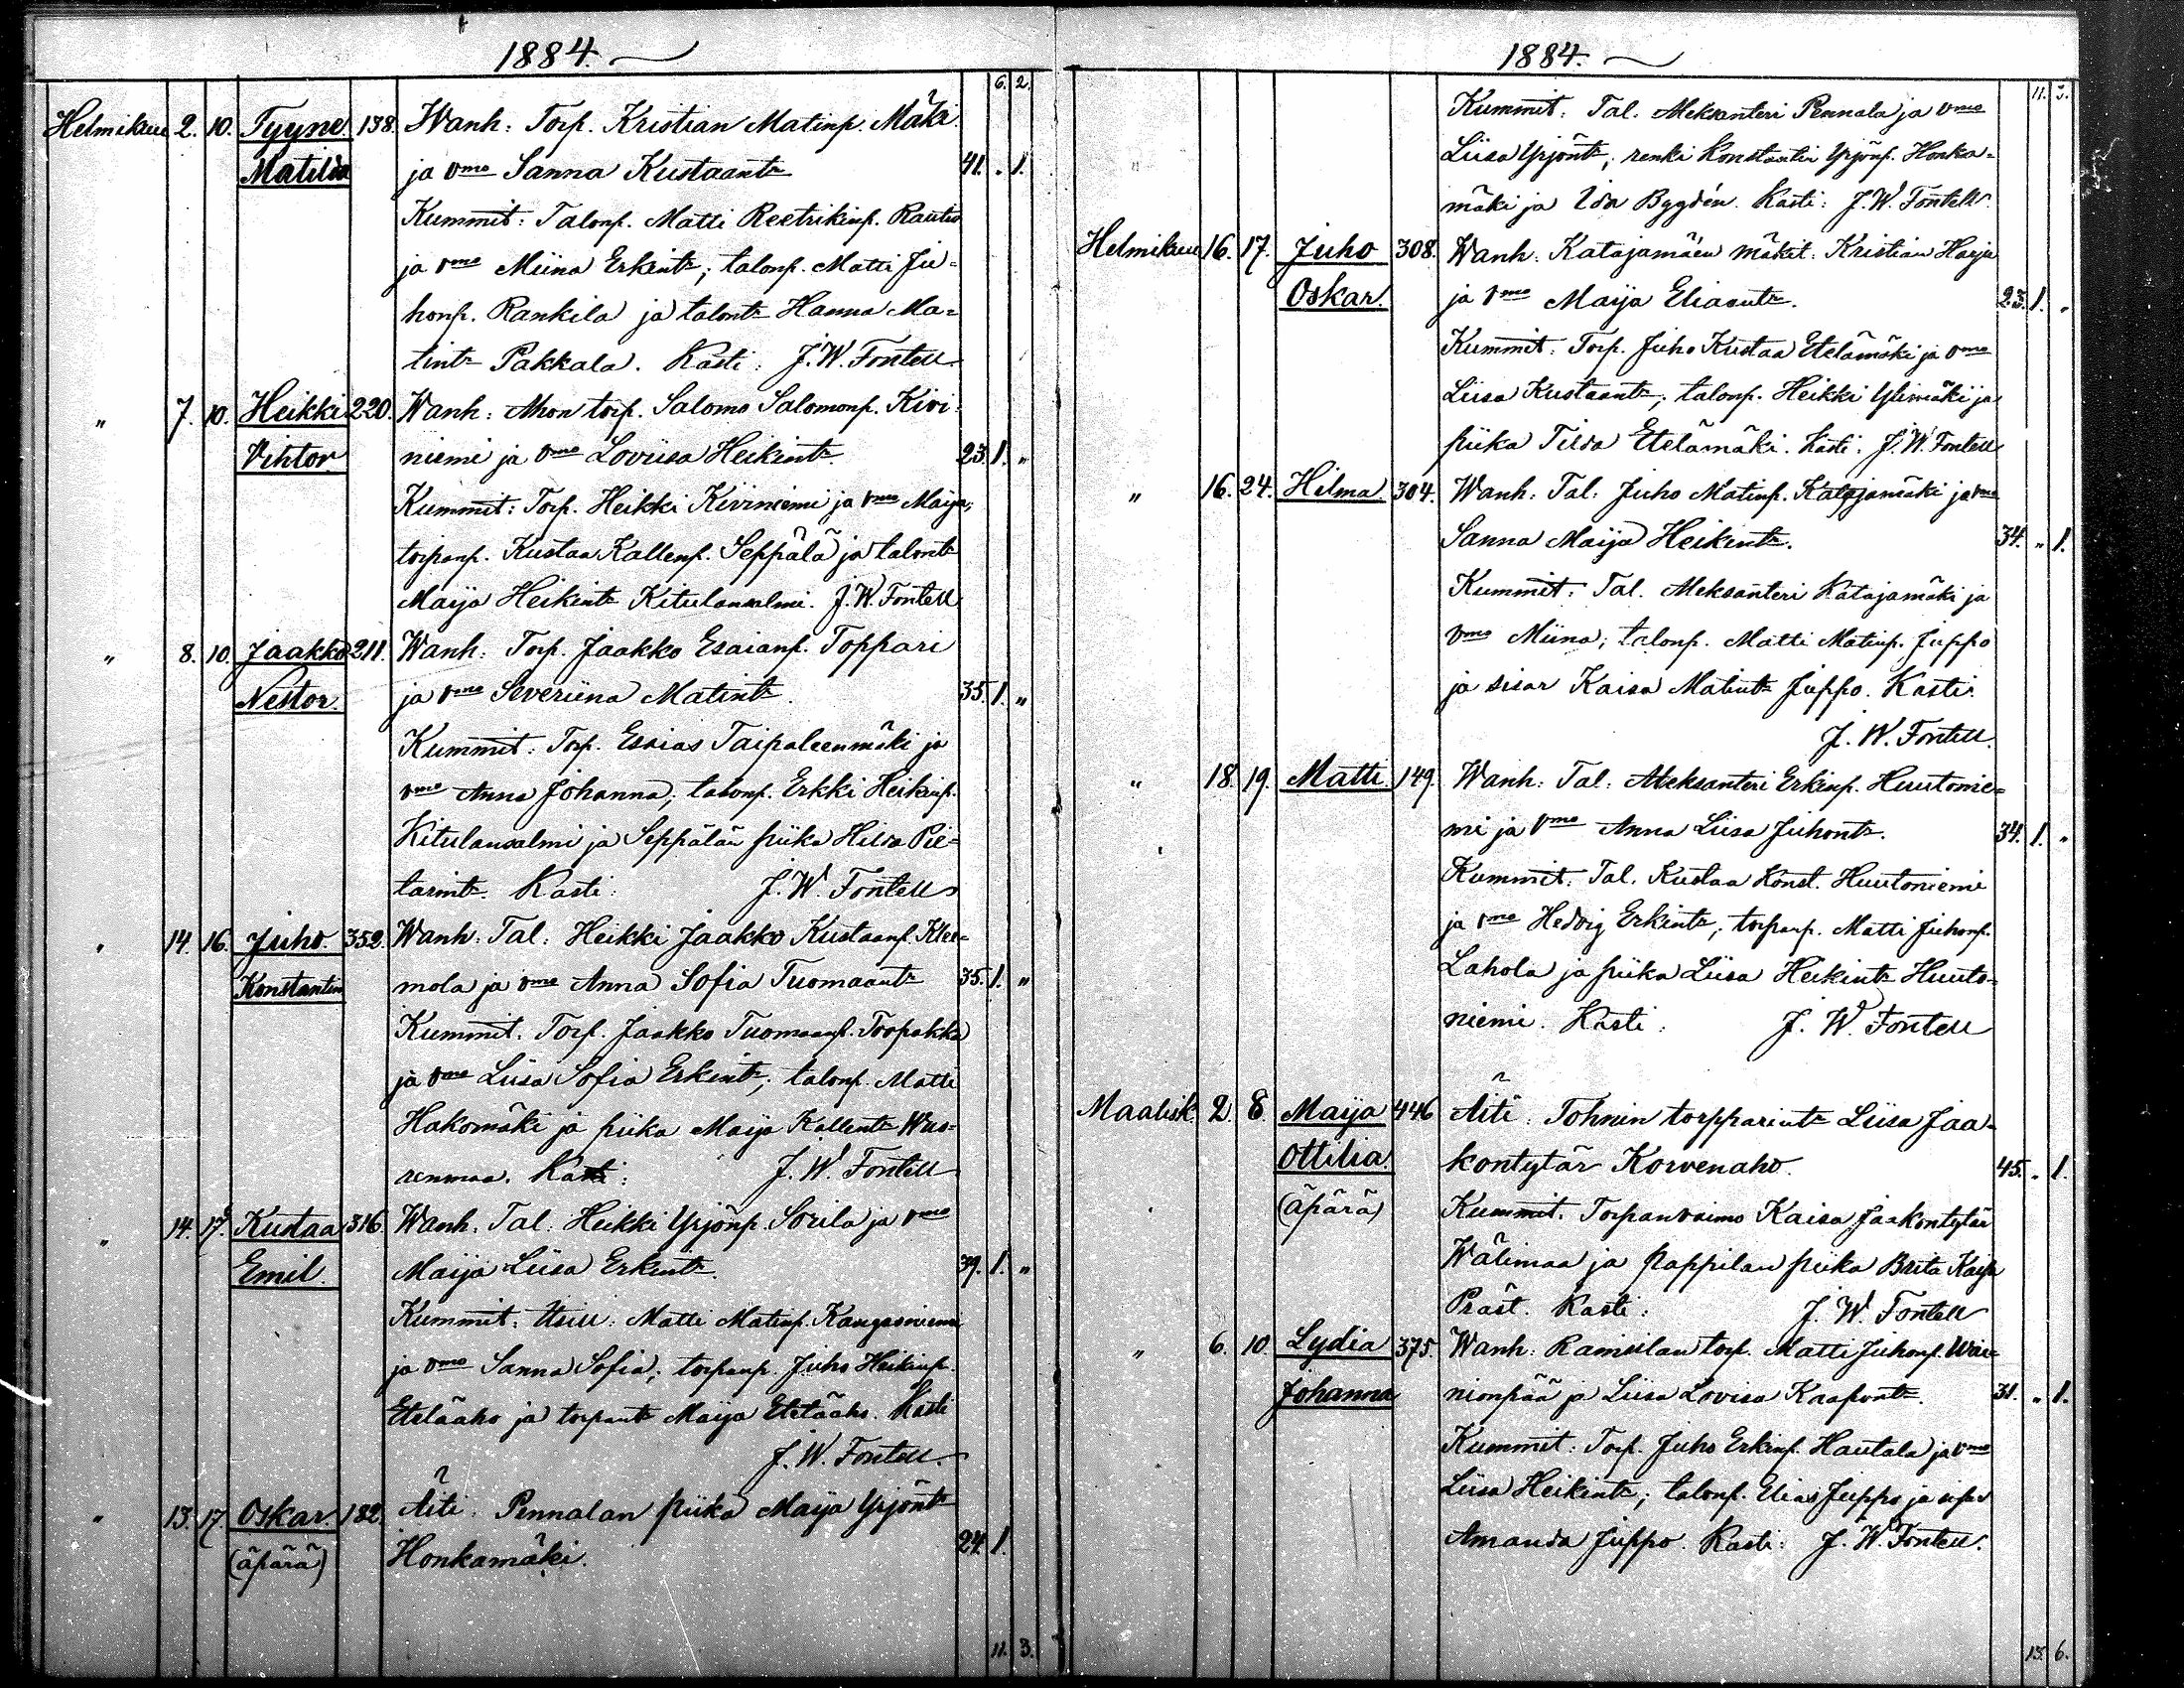 1884.
6. 2.
Helmikuu 2. 10. Tyyne 138. Wanh: Torp. Kristian Matinp. Mäki
Matilda ja vmo Sanna Kustaantr 41. " 1.
Kummit: Talonp. Matti Reetrikinp. Rautio
ja vmo Miina Erkintr; talonp. Matti Ju-
honp. Rankila ja talontr Hanna Ma-
tintr Pakkala. Kasti: J. W. Fontell.
" 7. 10. Heikki 220. Wanh: Ahon torp. Salomo Salomonp. Kivi-
Vihtor niemi ja vmo Loviisa Heikintr. 23. 1. "
Kummit: Torp. Heikki Kiviniemi ja vmo Maija;
torpanp. Kustaa Kallenp. Seppälä ja talontr
Maija Heikintr Kitulansalmi. J. W. Fontell
" 8. 10. Jaakko 211. Wanh: Torp. Jaakko Esaianp. Toppari
Nestor. ja vmo Severiina Matintr. 35. 1. "
Kummit: Torp. Esaias Taipaleenmäki ja
vmo Anna Johanna; talonp. Erkki Heikinp.
Kitulansalmi ja Seppälän piika Hilda Pie-
tarintr. Kasti: J. W. Fontell
" 14. 16. Juho 352. Wanh: Tal: Heikki Jaakko Kustaanp. Klee-
Konstantin mola ja vmo Anna Sofia Tuomaantr 35. 1. "
Kummit. Torp. Jaakko Tuomaanp. Torpakka
ja vmo Liisa Sofia Erkintr; talonp. Matti
Hakomäki ja piika Maija Kallentr Wuo-
renmaa. Kasti: J. W. Fontell
" 14. 17. Kustaa 316. Wanh. Tal: Heikki Yrjönp. Sorila ja vmo
Emil. Maija Liisa Erkintr. 39. 1. "
Kummit: Matti Matinp. Kangasniemi
ja vmo Sanna Sofia; torpanp. Juho Heikinp.
Eteläaho ja torpantr Maija Eteläaho. Kasti
J. W. Fontell.
" 13. 17. Oskar 182. Äiti: Pennalan piika Maija Yrjöntr
(äpärä) Honkamäki. 24. 1.
11. 3.
1884.
11. 3.
Kummit: Tal. Aleksanteri Pennala ja vmo
" Liisa Yrjöntr; renki Konstantin Yrjönp. Honka-
mäki ja Ida Bygdén. Kasti: J. W. Fontell.
Helmikuu 16. 17. Juho 308. Wanh: Katajamäen mäkit: Kristian Harju
Oskar. ja vmo Maija Eliaantr. 23. 1. "
Kummit: Torp. Juho Kustaa Etelämäki ja vmo
Liisa Kustaantr; talonp. Heikki Ylimäki ja
piika Tilda Etelämäki. Kasti: J. W. Fontell
" 16. 24. Hilma 304. Wanh: Tal: Juho Matinp. Katajamäki ja vmo
Sanna Maija Heikintr. 34. " 1.
Kummit: Tal. Aleksanteri Katajamäki ja
vmo Miina; talonp. Matti Matinp. Juppo
ja sisar Kaisa Matintr Juppo. Kasti:
J. W. Fontell.
" 18. 19. Matti. 149. Wanh: Tal: Aleksanteri Erkinp. Huutonie-
mi ja vmo Anna Liisa Juhontr. 34. 1. "
Kummit: Tal. Kustaa Konst. Huutoniemi
ja vmo Hedvig Erkintr; torpanp. Matti Juhonp.
Lahola ja piika Liisa Heikintr Huuto-
niemi. Kasti: J. W. Fontell
Maalisk. 2. 8. Maija 446 Äiti: Tohnin torpparintr Liisa Jaa-
Ottilia. kontytär Korvenaho. 45. " 1.
(äpärä) Kummit. Torpanvaimo Kaisa Jaakontytär
Wälimaa ja pappilan piika Brita Kaisa
Präst. Kasti: J. W. Fontell
" 6. 10. Lydia 375. Wanh: torp. Matti Juhonp. Wäi-
Johanna nionpää ja Liisa Lovisa Kaapontr. 31. " 1.
Kummit: Torp. Juho Erkinp. Hautala ja vmo
Liisa Heikintr; talonp. Elias Juppo ja sisar
Amanda Juppo. Kasti: J. W. Fontell.
15. 6.